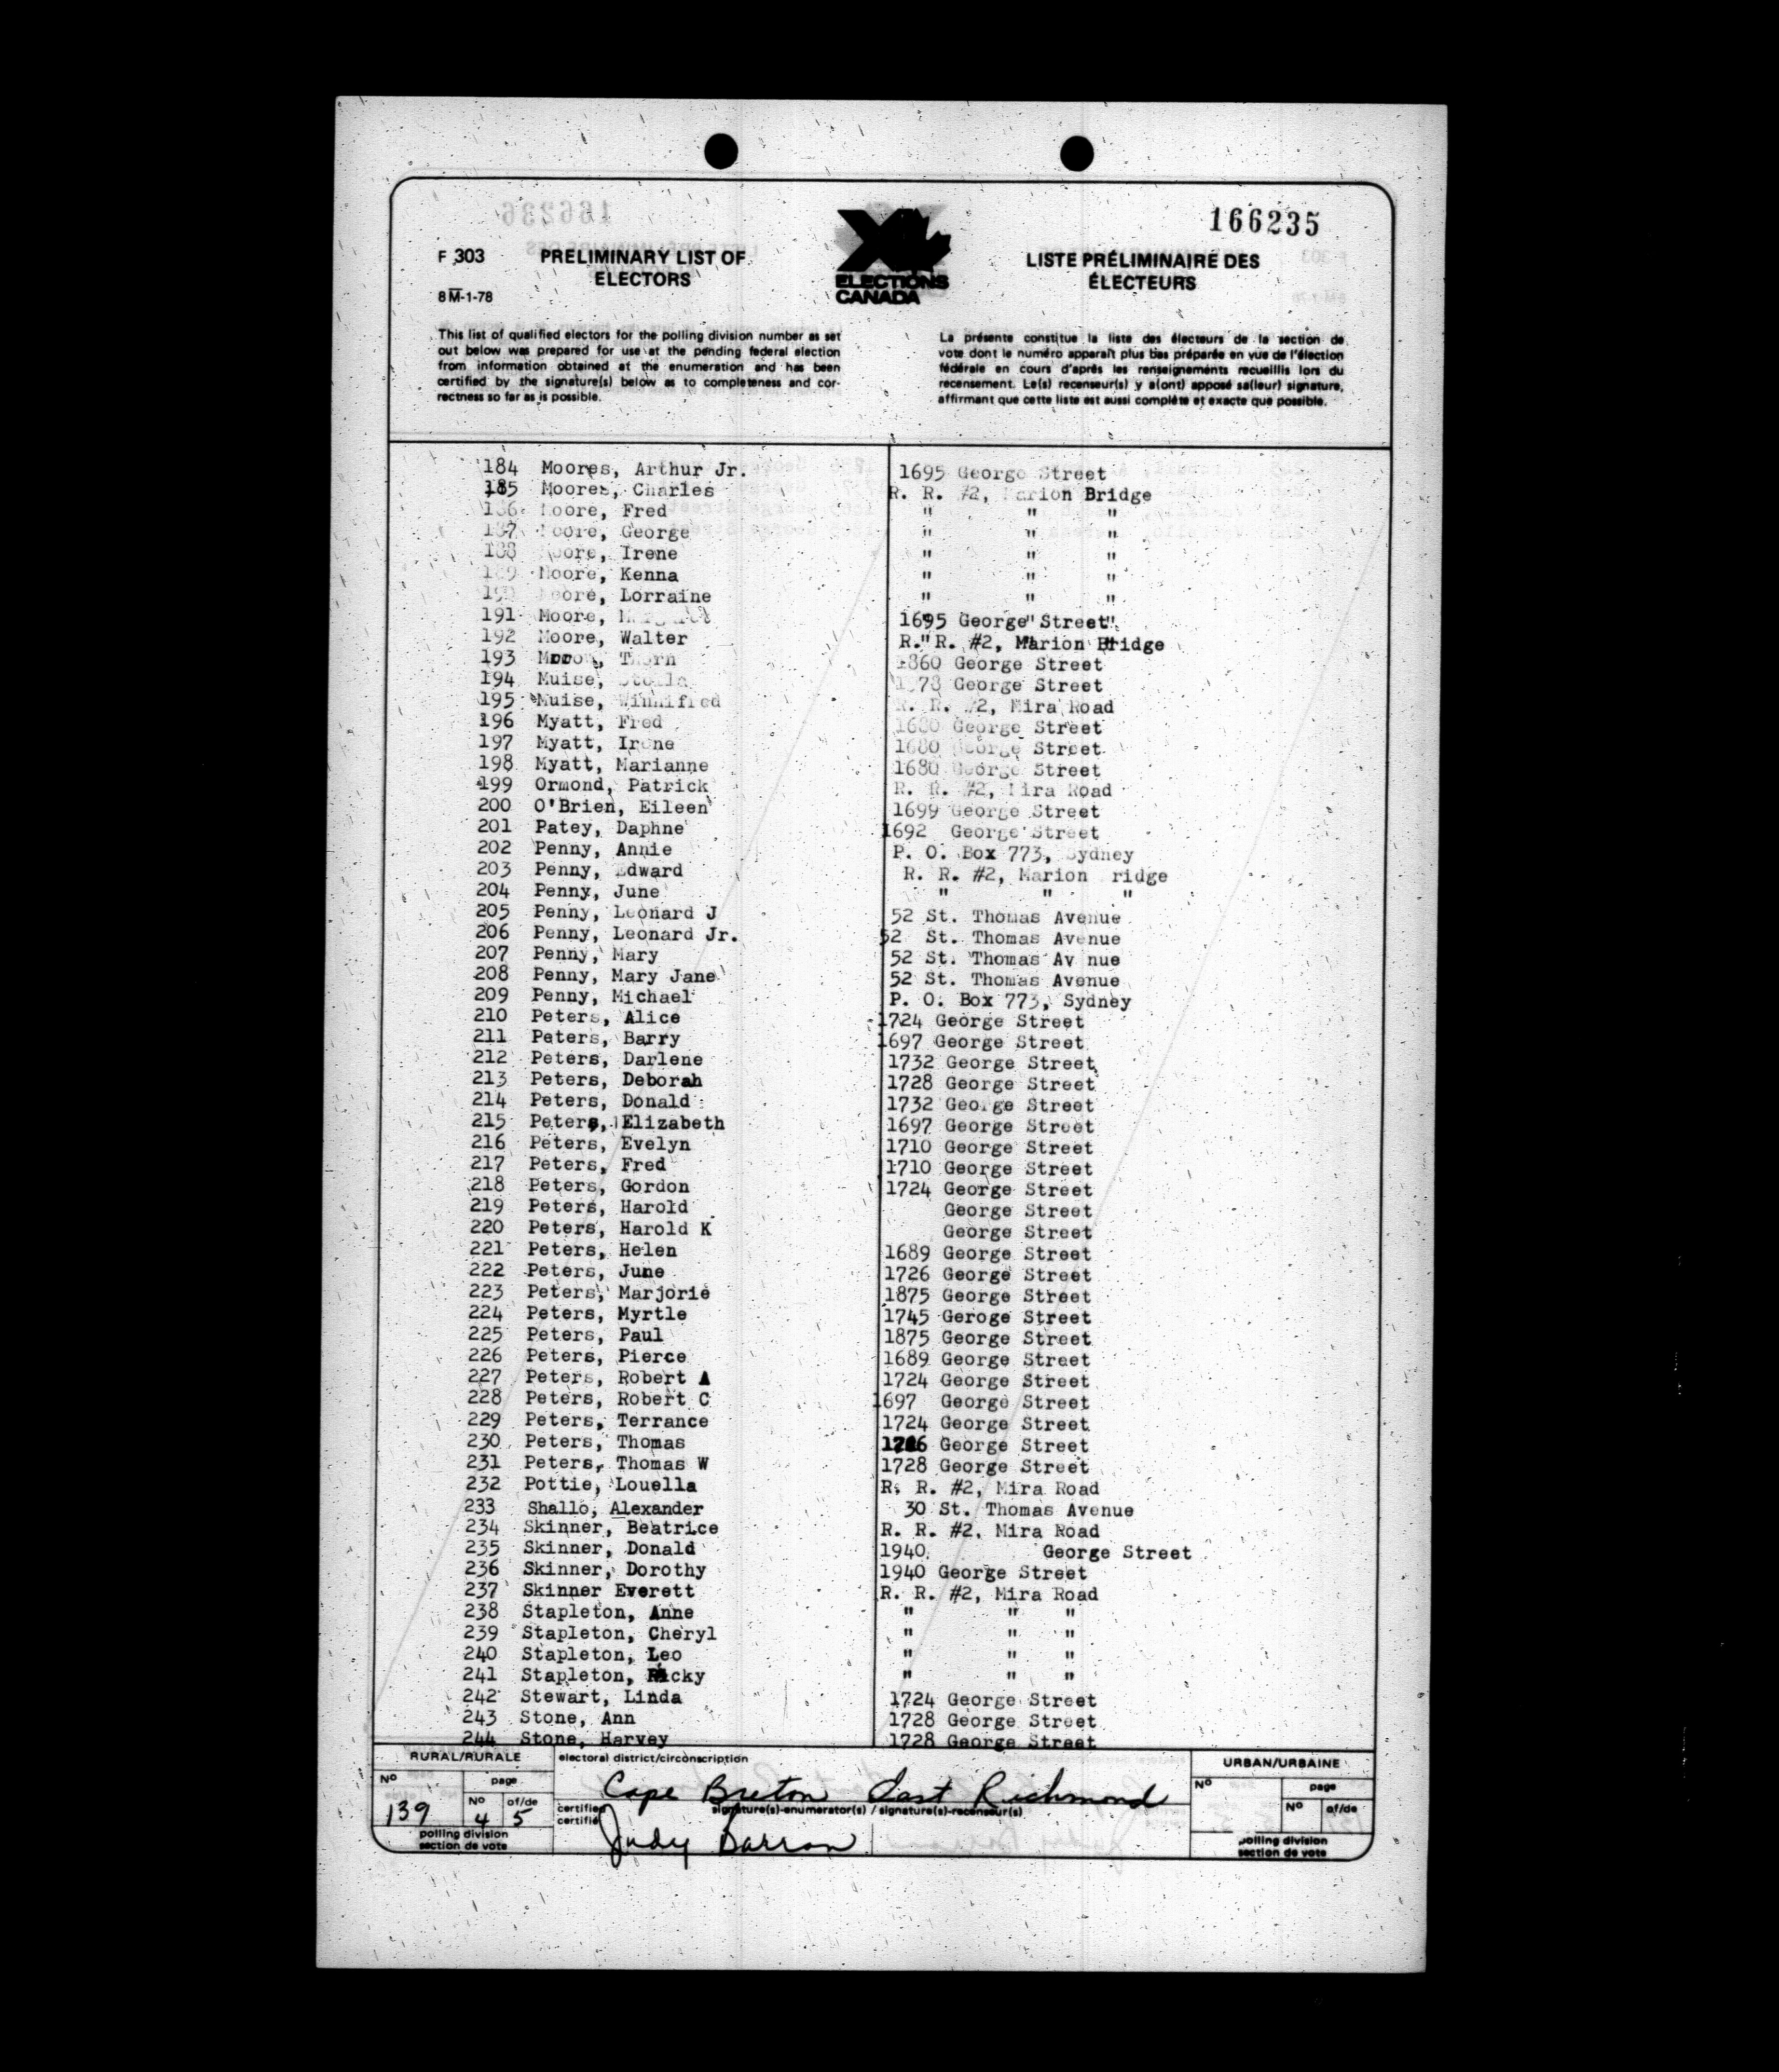 166235
F 303
PRELIMINARY LIST OF
ELECTORS
8M-1-78
ELECTIONS
CANADA
LISTE PRÉLIMINAIRE DES
ÉLECTEURS
This list of qualified electors for the polling division number as set
out below was prepared for use at the pending federal election
from information obtained at the enumeration and has been
certified by the signature(s) below as to completeness and cor-
rectness so far as is possible.
La présente constitue la liste des électeurs de la section de
vote dont le numéro apparaît plus bas préparée en vue de l'élection
fédérale en cours d'après les renseignements recueillis lors du
recensement. Le(s) recenseur(s) y a(ont) apposé sa(leur) signature,
affirmant que cette liste est aussi complète et exacte que possible.
184 Moores, Arthur Jr. 1695 George Street
185 Moores, Charles R. R. #2, Marion Bridge
186 Moore, Fred " " "
187 Moore, George " " "
188 Moore, Irene " " "
189 Moore, Kenna " " "
190 Moore, Lorraine " " "
191 Moore, 1695 George" Street"
192 Moore, Walter R."R. #2, Marion Bridge
193 1860 George Street
194 Muise, George Street
195 Muise, Winnifred R. R. #2, Mira Road
196 Myatt, Fred 1680 George Street
197 Myatt, Irene 1680 George Street
198 Myatt, Marianne 1680 George Street
199 Ormond, Patrick R. R. #2, Mira Road
200 O'Brien, Eileen 1699 George Street
201 Patey, Daphne 1692 George Street
202 Penny, Annie P. O. Box 773, Sydney
203 Penny, Edward R. R. #2, Marion ridge
204 Penny, June " " "
205 Penny, Leonard J 52 St. Thomas Avenue
206 Penny, Leonard Jr. 52 St. Thomas Avenue
207 Penny, Mary 52 St. Thomas Av nue
208 Penny, Mary Jane 52 St. Thomas Avenue
209 Penny, Michael P. O. Box 773, Sydney
210 Peters, Alice 1724 George Street
211 Peters, Barry 1697 George Street
212 Peters, Darlene 1732 George Street
213 Peters, Deborah 1728 George Street
214 Peters, Donald 1732 George Street
215 Peters, Elizabeth 1697 George Street
216 Peters, Evelyn 1710 George Street
217 Peters, Fred 1710 George Street
218 Peters, Gordon 1724 George Street
219 Peters, Harold George Street
220 Peters, Harold K George Street
221 Peters, Helen 1689 George Street
222 Peters, June 1726 George Street
223 Peters, Marjorie 1875 George Street
224 Peters, Myrtle 1745 Geroge Street
225 Peters, Paul 1875 George Street
226 Peters, Pierce 1689 George Street
227 Peters, Robert A 1724 George Street
228 Peters, Robert C 1697 George Street
229 Peters, Terrance 1724 George Street
230 Peters, Thomas 1726 George Street
231 Peters, Thomas W 1728 George Street
232 Pottie, Louella R. R. #2, Mira Road
233 Shallo, Alexander 30 St. Thomas Avenue
234 Skinner, Beatrice R. R. #2, Mira Road
235 Skinner, Donald 1940 George Street
236 Skinner, Dorothy 1940 George Street
237 Skinner Everett R. R. #2, Mira Road
238 Stapleton, Anne " " "
239 Stapleton, Cheryl " " "
240 Stapleton, Leo " " "
241 Stapleton, Ricky " " "
242 Stewart, Linda 1724 George Street
243 Stone, Ann 1728 George Street
244 Stone, Harvey 1728 George Street
RURAL/RURALE
No page
139 No 4 of/de 5
polling division
section de vote
electoral district/circonscription
Cape Breton East Richmond
certified
certifié
signature(s)-enumerator(s) / signature(s)-recenseur(s)
Judy Barron
URBAN/URBAINE
No page
No of/de
polling division
section de vote